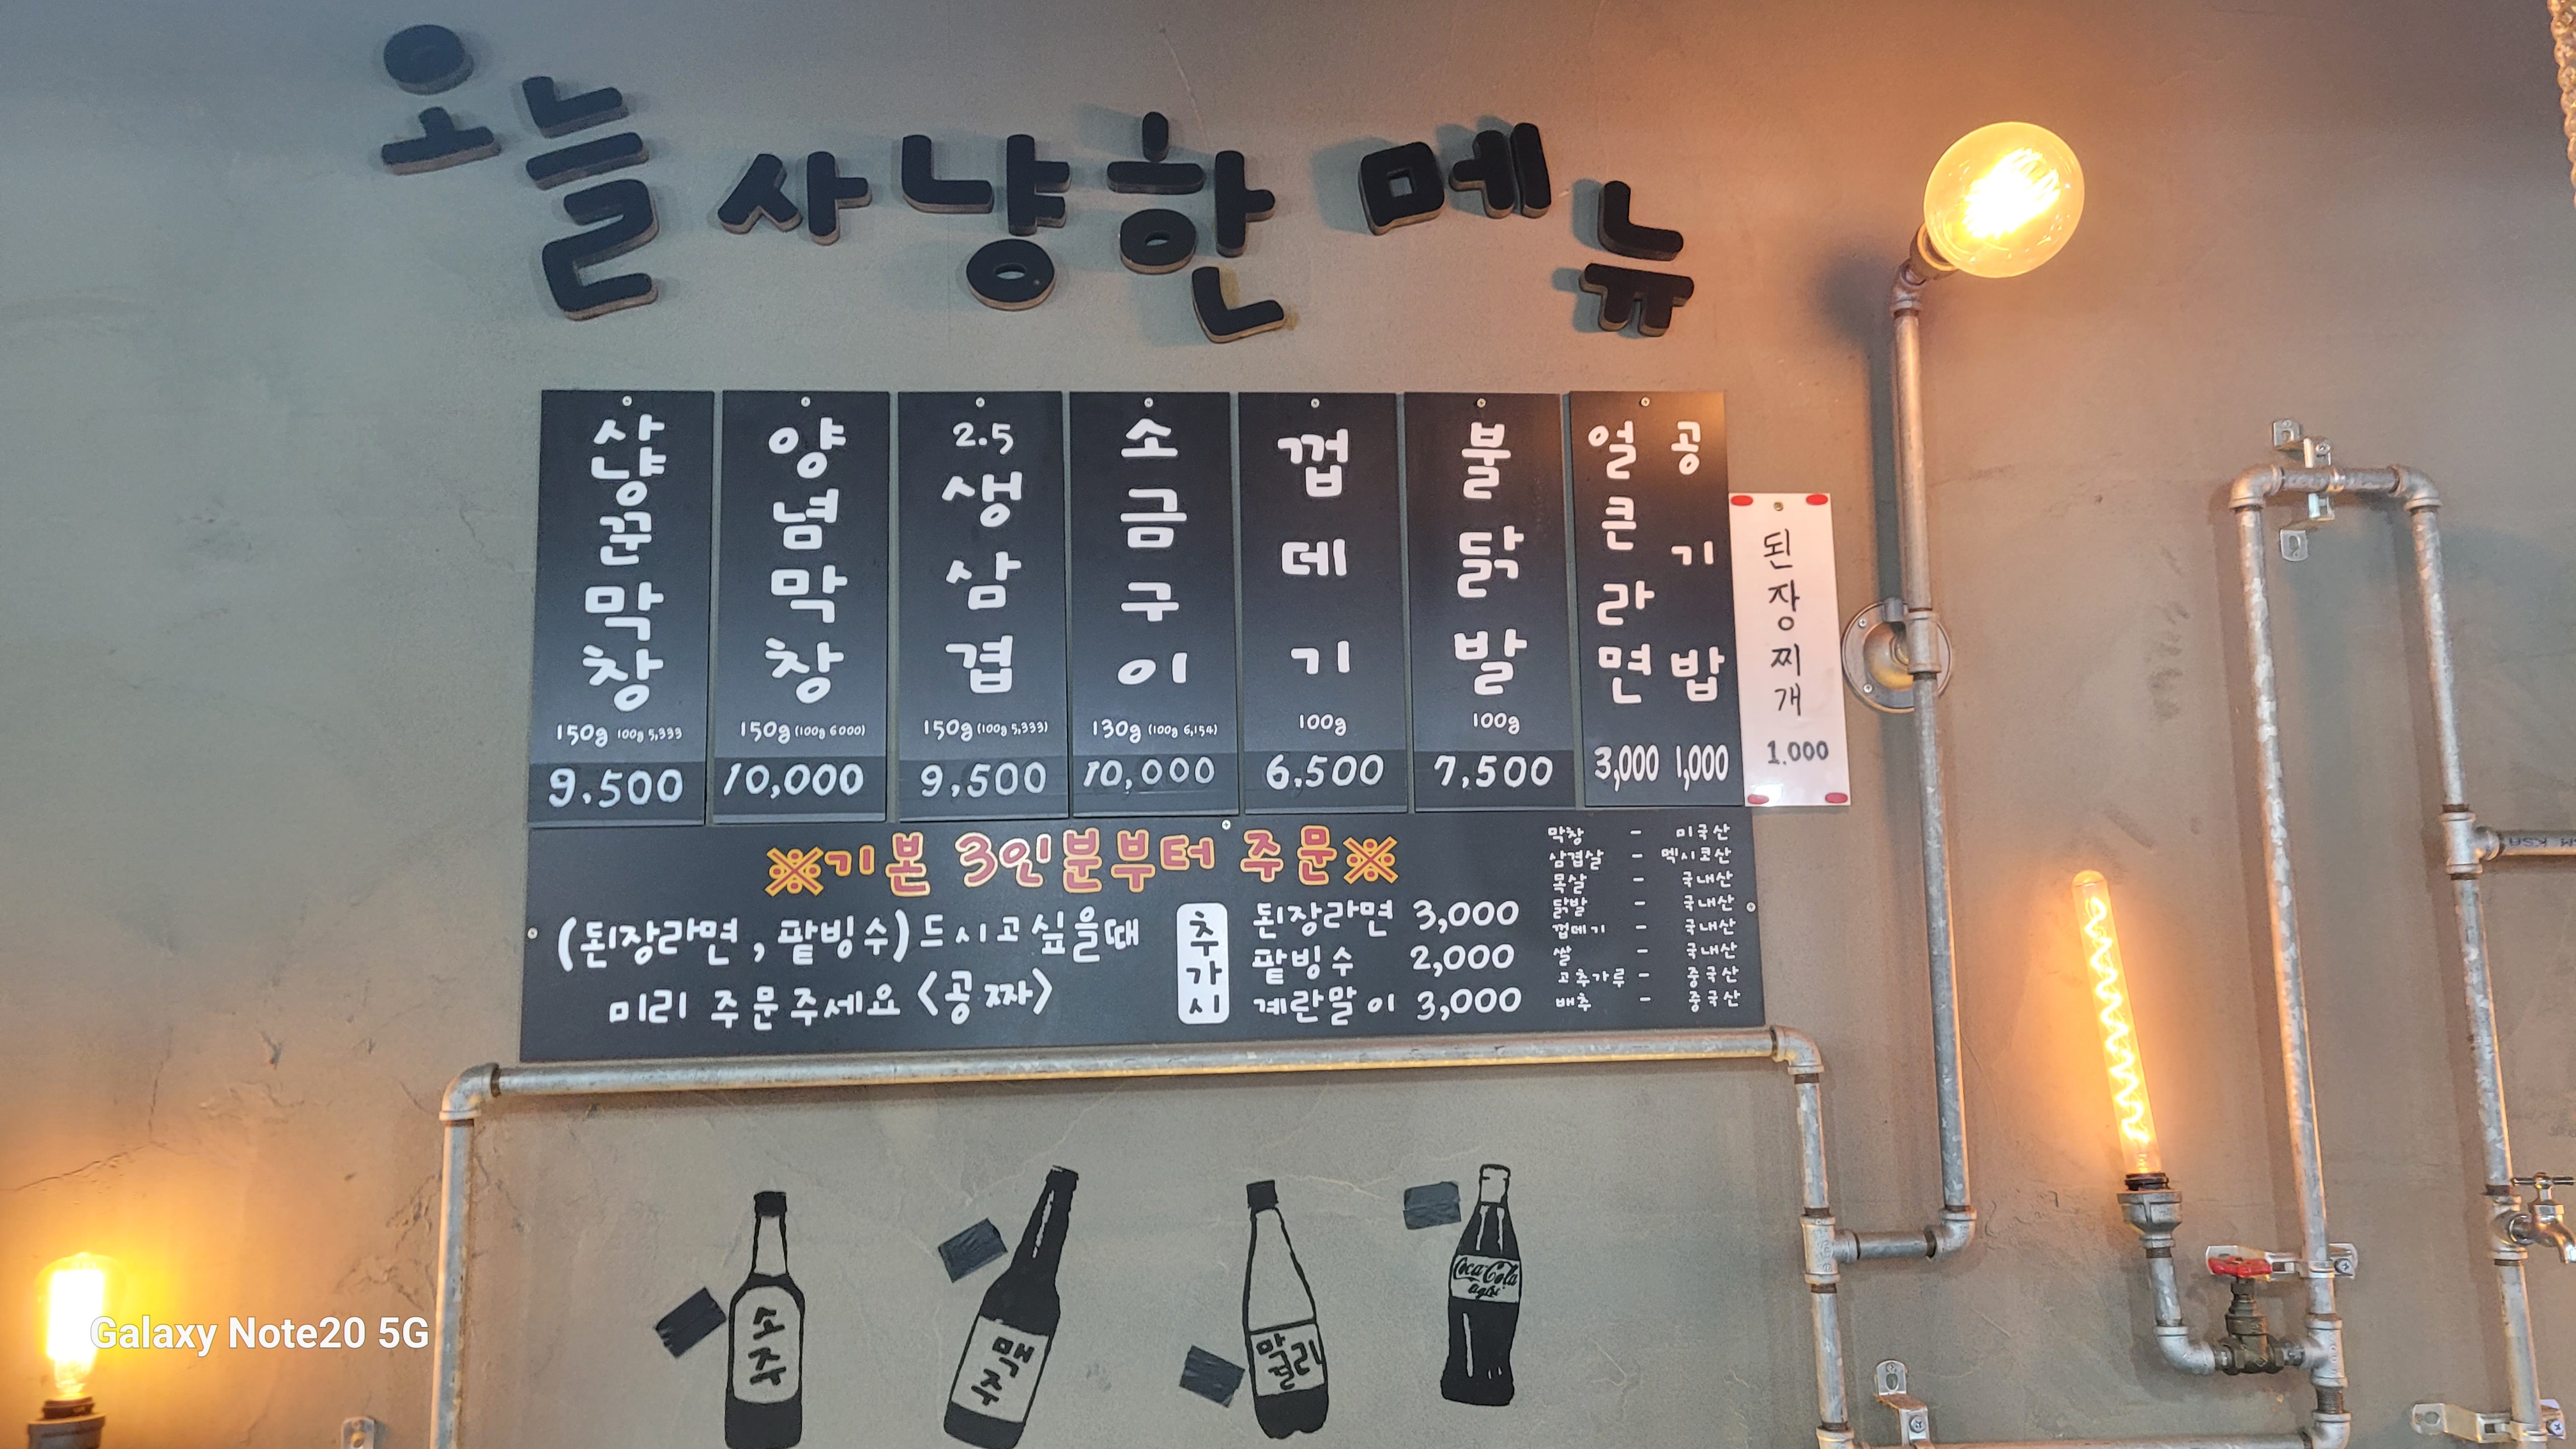 오늘 사냥한 메뉴
사냥꾼막창
150g 100g 5,333
9,500
양념막창
150g (100g 6000)
10,000
2.5
생삼겹
150g (100g 5,333)
9,500
소금구이
130g (100g 6,154)
10,000
껍데기
100g
6,500
불닭발
100g
7,500
얼큰라면
3,000
공기밥
1,000
된장찌개
1.000
※기본 3인분부터 주문※
(된장라면, 팥빙수)드시고싶을때
미리 주문주세요 <공짜>
추가시
된장라면 3,000
팥빙수 2,000
계란말이 3,000
막창 - 미국산
삼겹살 - 멕시코산
목살 - 국내산
닭발 - 국내산
껍데기 - 국내산
쌀 - 국내산
고추가루 - 중국산
배추 - 중국산
소주
맥주
막걸리
Coca-Cola
light
KSA
Galaxy Note20 5G